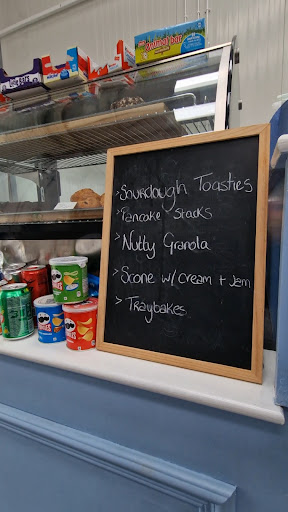 > Sourdough Toasties
> Pancake Stacks
> Nutty Granola
> Scone w/ Cream + Jam
> Traybakes